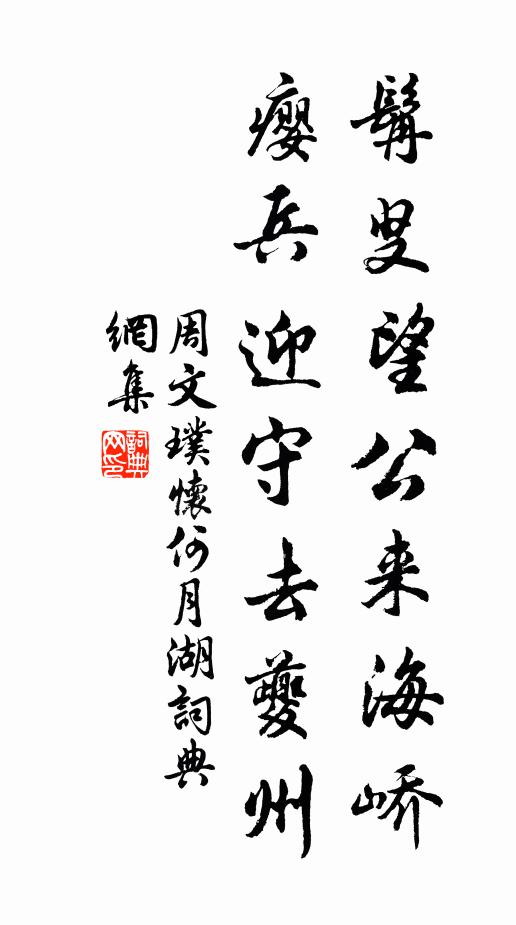 髯叟望公来海峤
癭兵迎守去夔州
周文璞懷何月湖詞典
網集
詞典网印